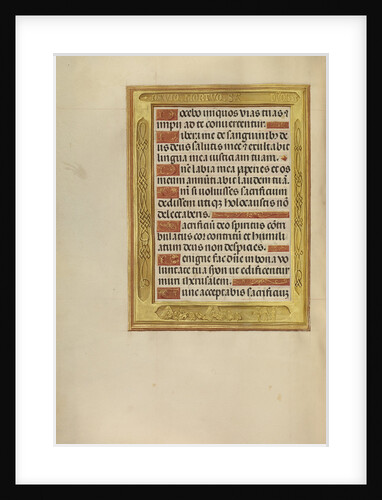 Docebo iniquos vias tuas: et
impii ad te convertentur.
Libera me de sanguinibus de
us deus salutis mee: et exultabit
lingua mea iusticiam tuam.
Domine labia mea aperies: et os
meum annuntiabit laudem tuam.
Quoniam si voluisses sacrificium
dedissem utique holocaustis non
delectaberis.
Sacrificium deo spiritus con
tribulatus cor contritum et humili
atum deus non despicies.
Benigne fac domine in bona vo
luntate tua syon ut edificentur
muri iherusalem.
Tunc acceptabis sacrificium